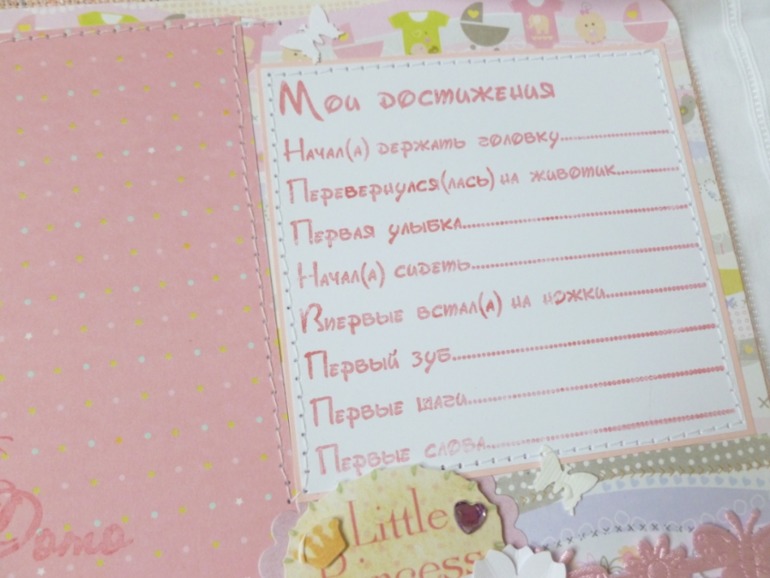 Мои достижения
Начал(а) держать головку
Перевернулся(лась) на животик
Первая улыбка
Начал(а) сидеть
Впервые встал(а) на ножки
Первый зуб
Первые шаги
Первые слова
Фото
Little
Princess